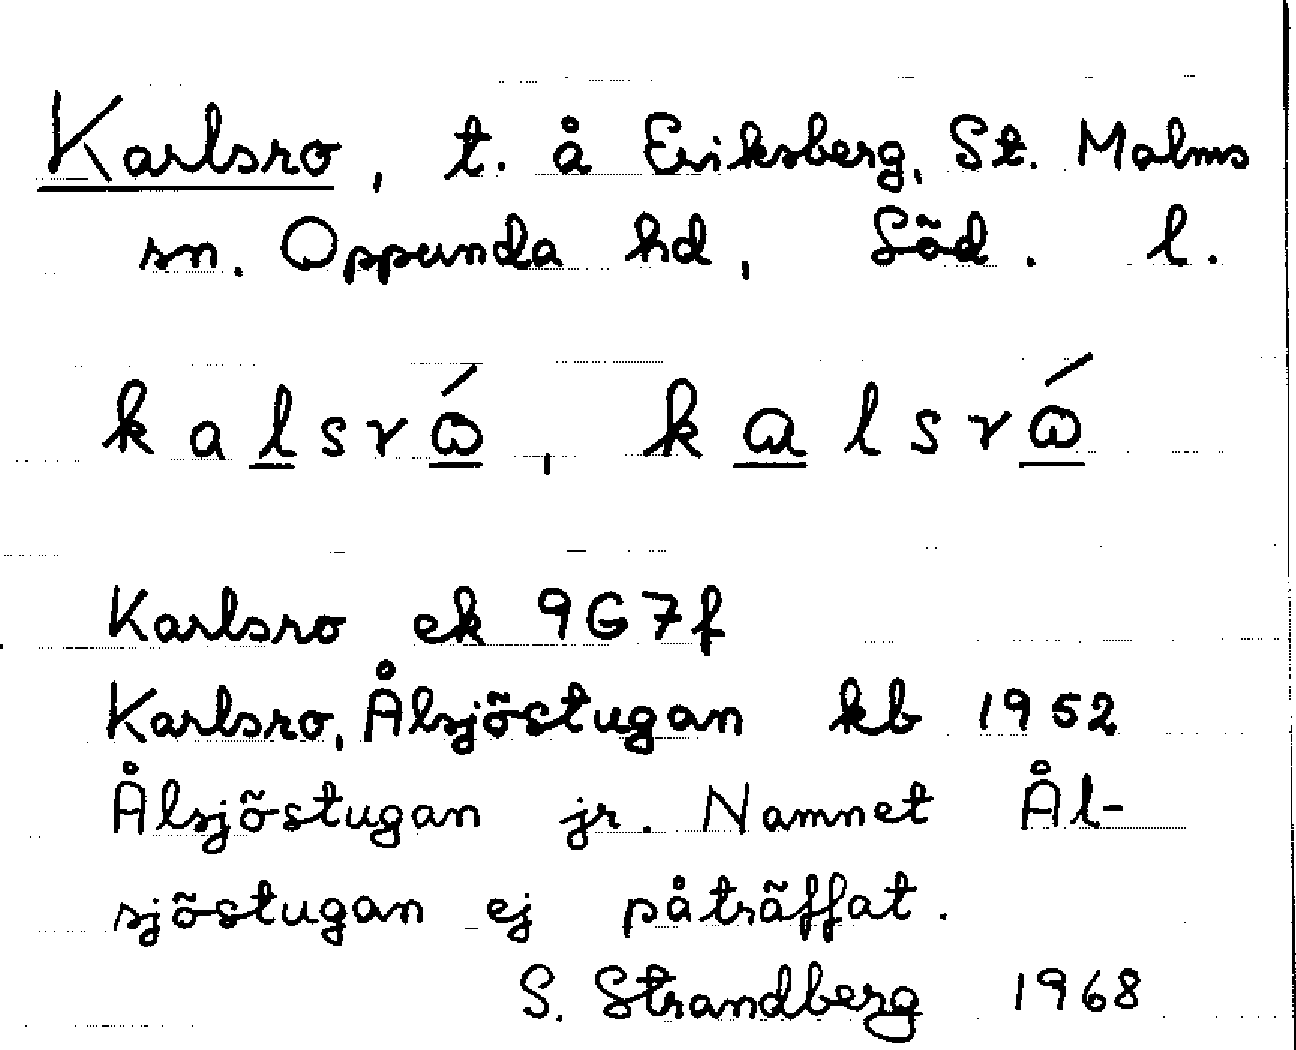 Karlsro, t. å Eriksberg, St. Malms
sn. Oppunda hd, Söd. l.
kalsrώ, kαlsrώ
Karlsro ek 9G7f
Karlsro, Ålsjöstugan kb 1952
Ålsjöstugan jr. Namnet Ål-
sjöstugan ej påträffat.
S. Strandberg 1968